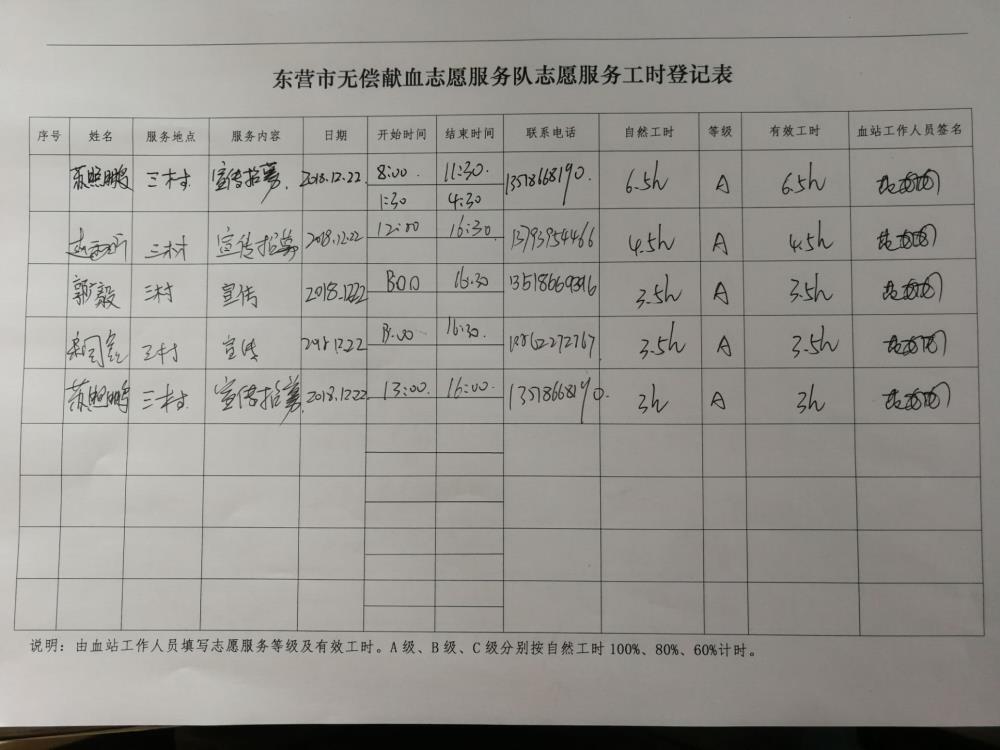 东营市无偿献血志愿服务队志愿服务工时登记表
序号 姓名 服务地点 服务内容 日期 开始时间 结束时间 联系电话 自然工时 等级 有效工时 血站工作人员签名
苏照鹏 三村 宣传招募. 2018.12.22. 8:00 11:30. 13518668190. 6.5h A 6.5h
1:30 4:30
三村 宣传招募 2018.12.22 12:00 16:30. 13793954466 4.5h A 4.5h
郭毅 三村 宣传 2018.12.22 16:30 3.5h A 3.5h
三村 宣传 2018.12.22 16:30. 3.5h A 3.5h
苏照鹏 三村 宣传招募. 2018.12.22 13:00. 16:00. 13518668190. 3h A 3h
说明：由血站工作人员填写志愿服务等级及有效工时。A级、B级、C级分别按自然工时100%、80%、60%计时。